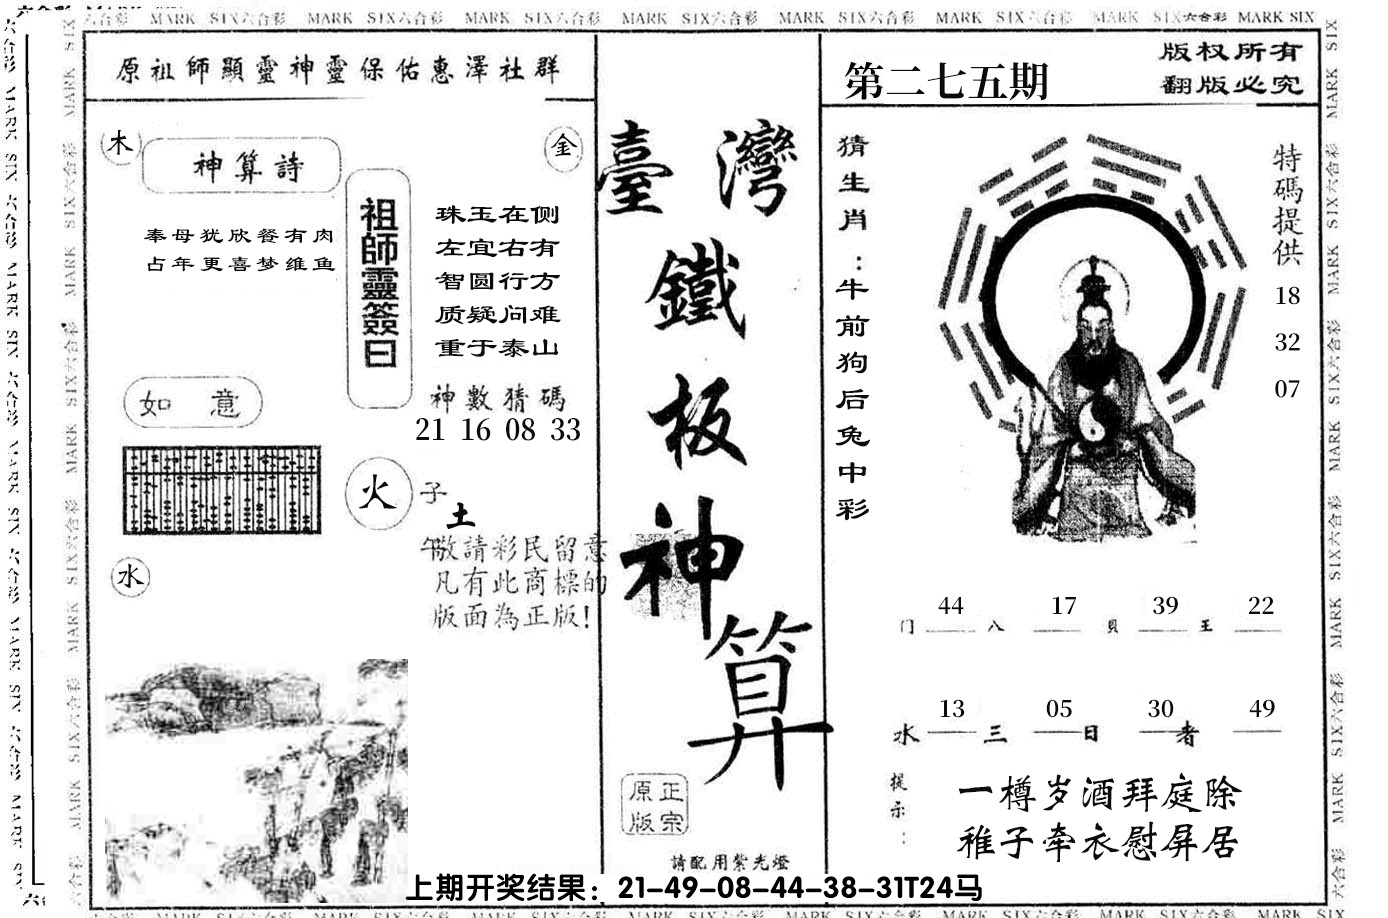 MARK SIX六合彩 MARK SIX六合彩 MARK SIX六合彩 MARK SIX六合彩 MARK SIX六合彩 MARK SIX六合彩 MARK SIX六合彩 MARK SIX
原祖師顯靈神靈保佑惠澤社群
木
神算詩
金
奉母犹欣餐有肉
占年更喜梦维鱼
祖師靈簽曰
珠玉在侧
左宜右有
智圆行方
质疑问难
重于泰山
神數猜碼
21 16 08 33
如 意
火
子
土
午
敬請彩民留意
凡有此商標的
版面為正版!
水
臺灣
鐵
板
神
算
原正
版宗
請配用紫光燈
第二七五期
版权所有
翻版必究
猜生肖：牛前狗后兔中彩
特碼提供
18
32
07
44 17 39 22
门 八 貝 王
13 05 30 49
水 三 日 者
提示：
一樽岁酒拜庭除
稚子牵衣慰屏居
上期开奖结果：21-49-08-44-38-31T24马